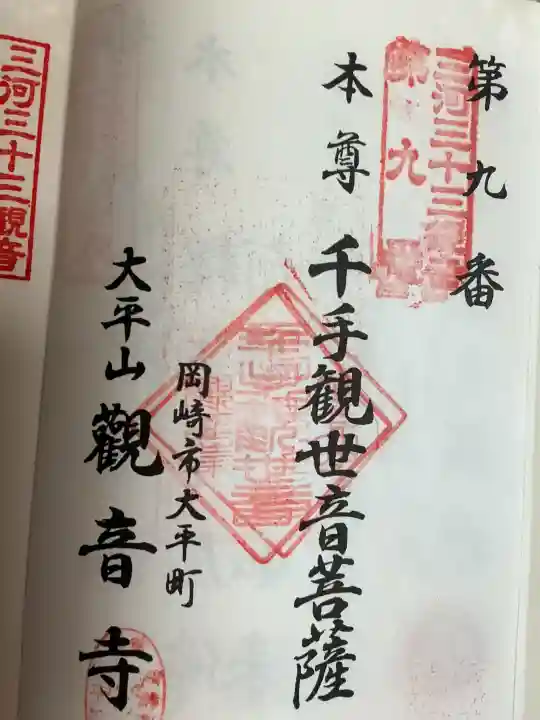 第九番
三河三十三観音
第九番
本尊 千手観世音菩薩
岡崎市大平町
大平山 觀音寺
三河三十三観音